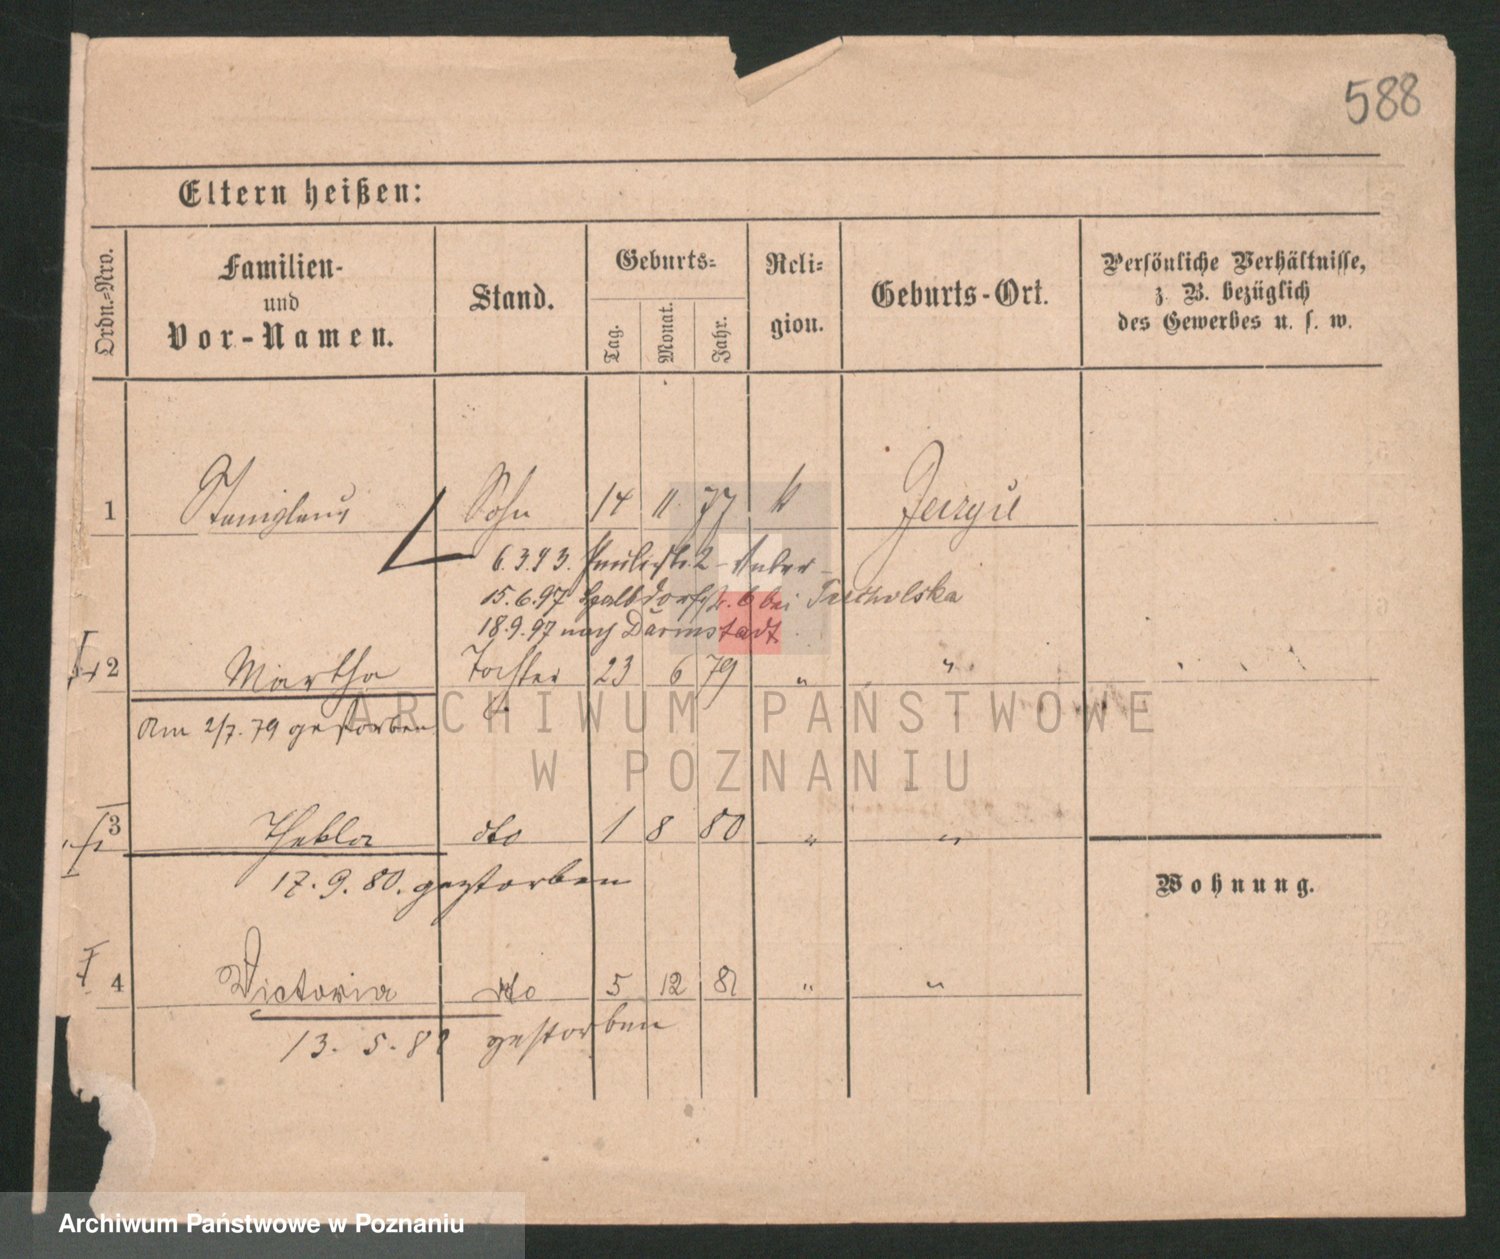 588
Eltern heißen:
Ordn.-Nro.
Familien-
und
Vor-Namen.
Stand.
Geburts-
Tag.
Monat.
Jahr.
Reli-
gion.
Geburts-Ort.
Persönliche Verhältnisse,
z. B. bezüglich
des Gewerbes u. s. w.
1 Stanislaus Sohn 14 11 77 k Jerzyce
6.3.93. 2
15.6.97 6 bei
18.9.97 nach Darmstadt
2 Martha Tochter 23 6 79 " "
Am 2/7. 79 gestorben
3 Thekla dto 1 8 80 " "
17. 9. 80. gestorben
Wohnung.
4 Victoria dto 5 12 81 " "
13. 5. 82 gestorben
ARCHIWUM PAŃSTWOWE
W POZNANIU
Archiwum Państwowe w Poznaniu